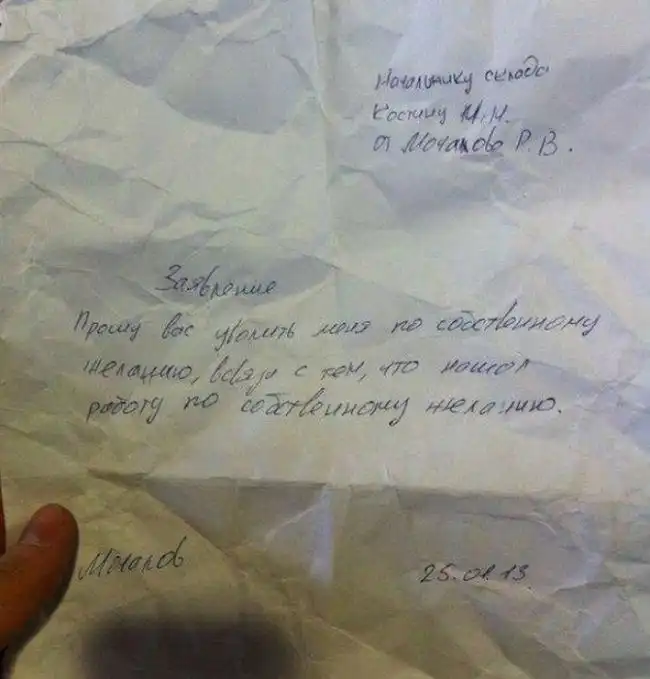 Начальнику склада
Костину М.Н.
от Мочалова Р.В.
Заявление
Прошу вас уволить меня по собственному
желанию, всвязи с тем, что нашол
работу по собственному желанию.
Мочалов 25.01.13